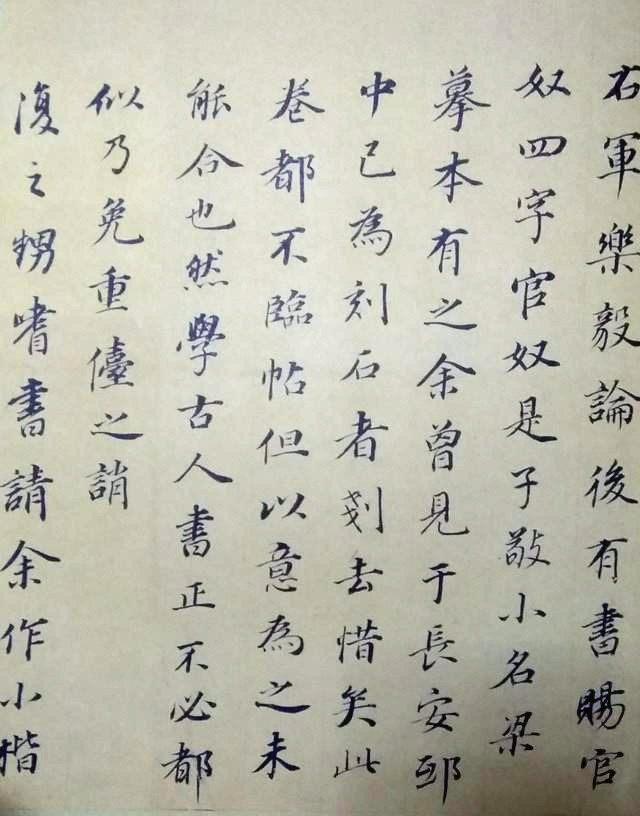 右軍樂毅論後有書賜官
奴四字官奴是子敬小名梁
摹本有之余曾見于長安邸
中已為刻石者剗去惜矣此
卷都不臨帖但以意為之未
能合也然學古人書正不必都
似乃免重儓之誚
復之甥嗜書請余作小楷